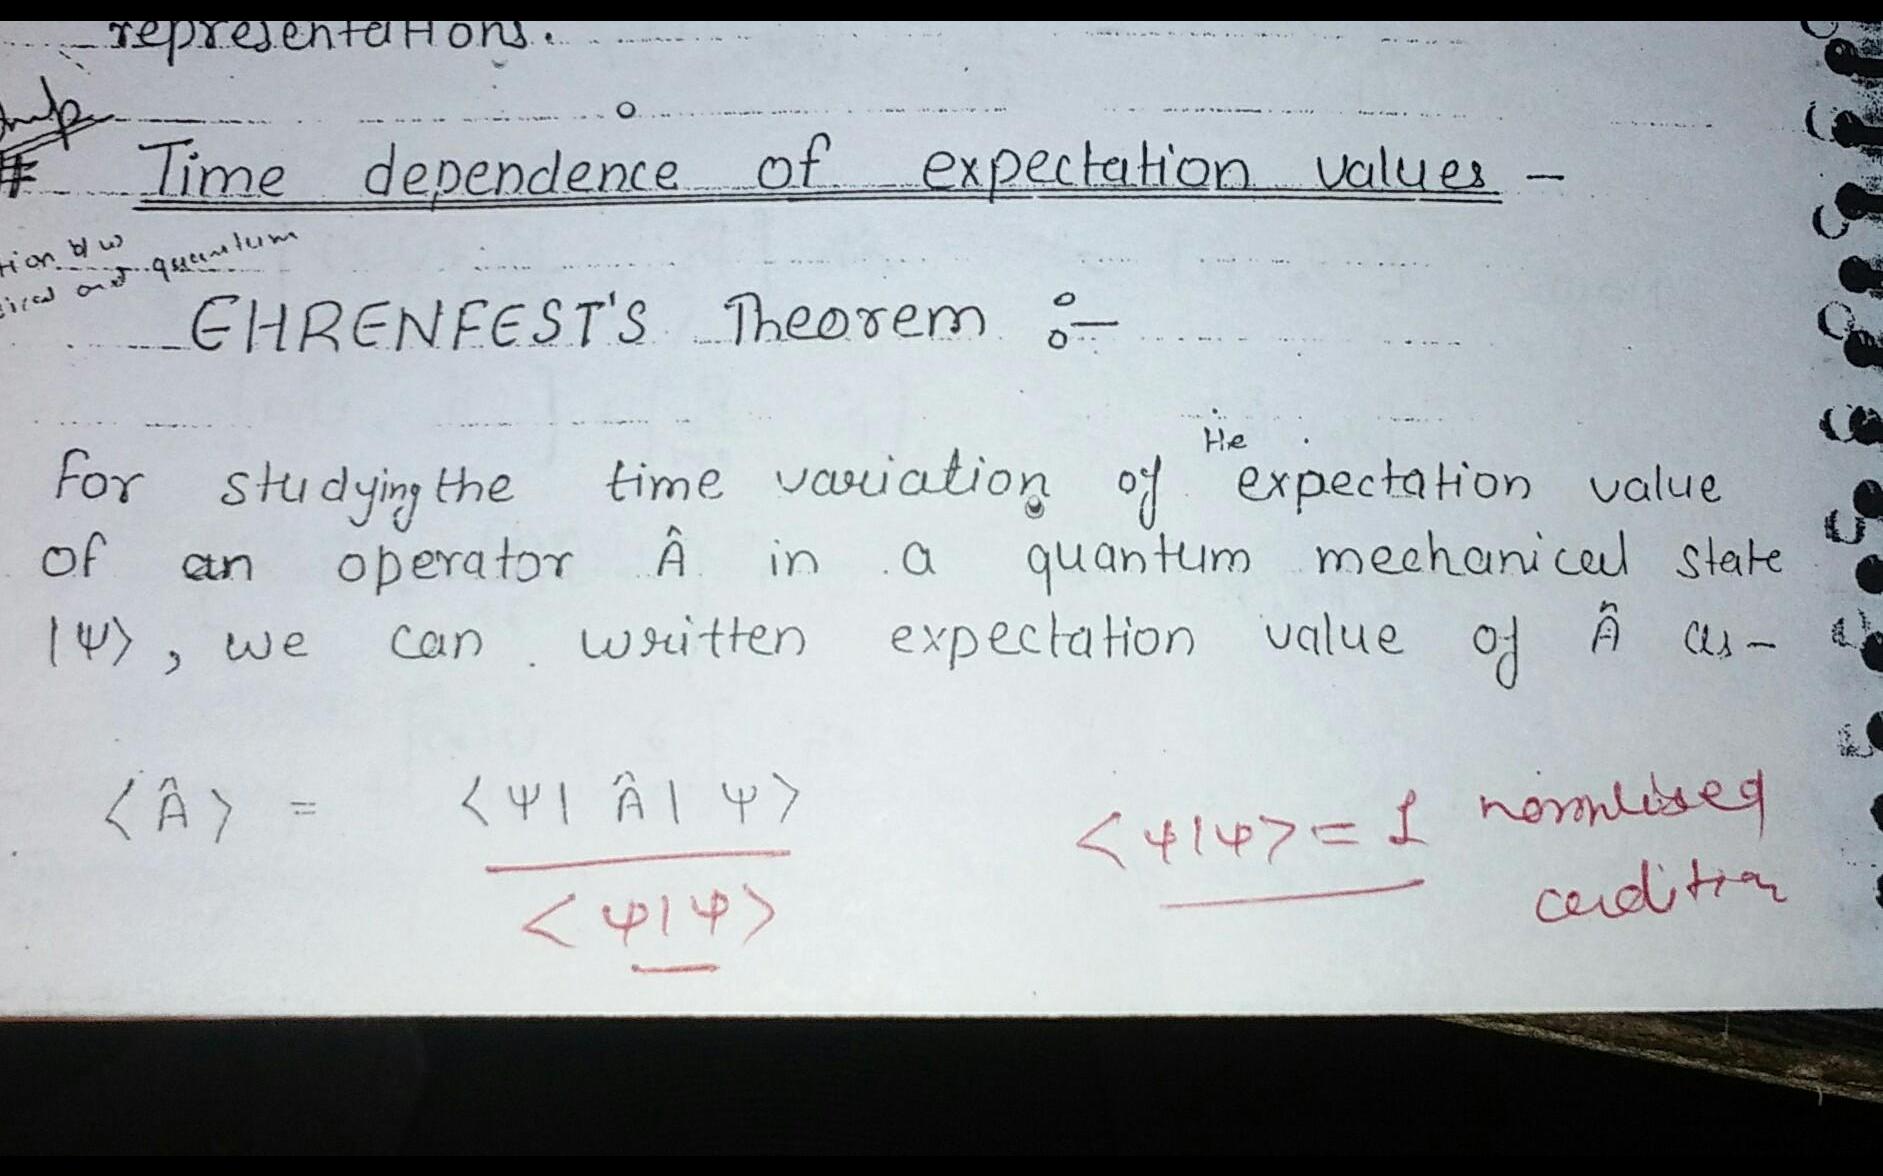 representations.
# Time dependence of expectation values -
tion b/w
and quantum
EHRENFEST'S Theorem :-
the
For studying the time variation of expectation value
of an operator Â in a quantum mechanical state
|Ψ⟩, we can written expectation value of Â as-
⟨Â⟩ = ⟨Ψ| Â | Ψ⟩
⟨Ψ|Ψ⟩
⟨Ψ|Ψ⟩ = 1 normlised
condition